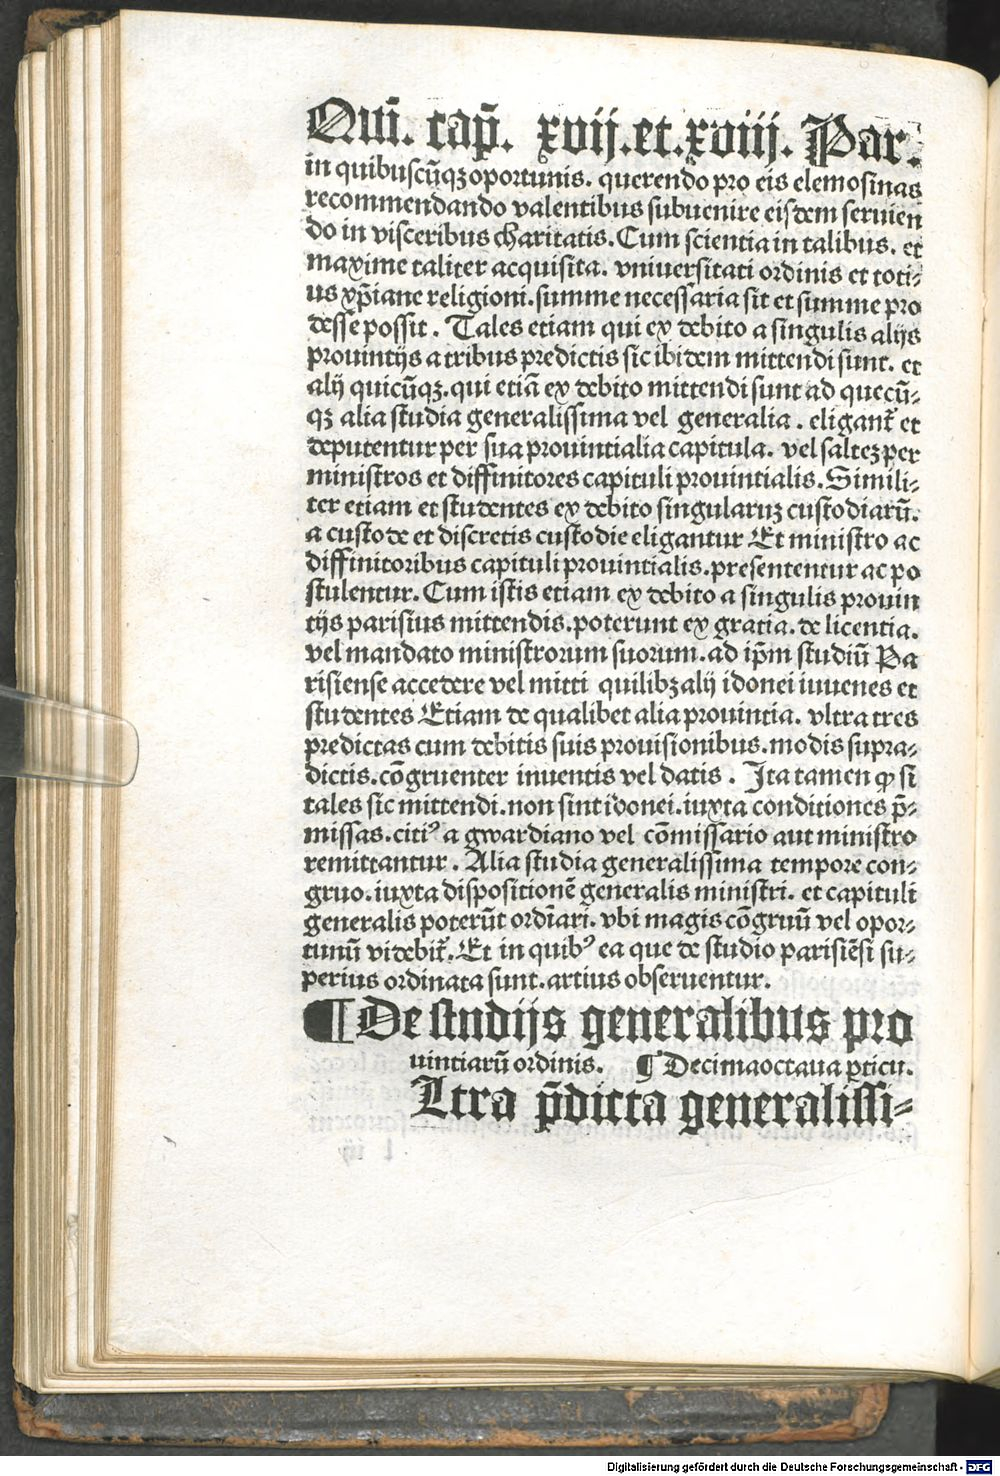 Qui̅. cap̅. xvij.et.xviij. Par.
in quibuscu̅qꝫ oportunis. querendo pro eis elemosinas
recommendando valentibus subuenire eisdem seruien
do in visceribus charitatis. Cum scientia in talibus. et
maxime taliter acquisita. vniuersitati ordinis et toti⸗
us xp̅iane religioni. summe necessaria sit et summe pro
desse possit. Tales etiam qui ex debito a singulis alijs
prouintijs a tribus predictis sic ibidem mittendi sunt. et
alij quicu̅qꝫ. qui etia̅ ex debito mittendi sunt ad quecu̅⸗
qꝫ alia studia generalissima vel generalia. eligant᷑ et
deputentur per sua prouintialia capitula. vel salteꝫ per
ministros et diffinitores capituli prouintialis. Simili⸗
ter etiam et studentes ex debito singularuꝫ custodiaru̅.
a custode et discretis custodie eligantur Et ministro ac
diffinitoribus capituli prouintialis. presententur ac po
stulentur. Cum istis etiam ex debito a singulis prouin
tijs parisius mittendis. poterunt ex gratia. de licentia.
vel mandato ministrorum suorum. ad ip̅m studiu̅ Pa
risiense accedere vel mitti quilibꝫ alij idonei iuuenes et
studentes Etiam de qualibet alia prouintia. vltra tres
predictas cum debitis suis prouisionibus. modis supra⸗
dictis. co̅gruenter inuentis vel datis. Ita tamen ꝙ si
tales sic mittendi. non sint idonei. iuxta conditiones p̅⸗
missas. citiꝰ a gwardiano vel co̅missario aut ministro
remittantur. Alia studia generalissima tempore con⸗
gruo. iuxta dispositione̅ generalis ministri. et capituli
generalis poteru̅t ordi̅ari. vbi magis co̅gruu̅ vel opor⸗
tunu̅ videbit᷑. Et in quibꝰ ea que de studio parisie̅si su⸗
perius ordinata sunt. artius obseruentur.
¶ De studijs generalibus pro
uintiaru̅ ordinis. ¶ Decimaoctaua ꝑticu.
Ltra p̅dicta generalissi⸗
Digitalisierung gefördert durch die Deutsche Forschungsgemeinschaft - DFG